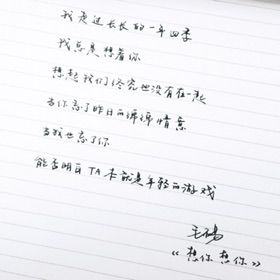 我是过长长的一年四季
我总是想着你
想起我们终究也没有在一起
当你忘了昨日的谆谆情意
当我也忘了你
能否明白TA本就是年轻的游戏
毛
《想你想你》